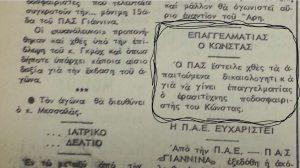 δοσφαιριστές που τελευταία
συγκροτούν την... μόνιμη 15ά-
δα του ΠΑΣ Γιάννινα.
Οι «συνάδελφοι» προπονή-
θηκαν και χθες υπό την επί-
βλεψη του κ. Γκμοχ και όπως
συνήθως επικράτησε κάποια αισιο-
δοξία για την έκβαση του ά-
γώνα.
Τον αγώνα θα διευθύνει
ο κ. Μεσσαλάς.
ΙΑΤΡΙΚΟ
ΔΕΛΤΙΟ
και μάλλον θα αγωνιστεί αύ-
ριο εναντίον του Άρη.
ΕΠΑΓΓΕΛΜΑΤΙΑΣ
Ο ΚΩΝΣΤΑΣ
Ο ΠΑΣ έστειλε χθες τα ά-
παιτούμενα δικαιολογητικά
για να γίνει επαγγελματίας
ο ερασιτέχνης ποδοσφαιρι-
στής του Κώνστας.
Η Π.Α.Ε. ΕΥΧΑΡΙΣΤΕΙ
Από την Π.Α.Ε. — ΠΑΣ
«ΓΙΑΝΝΙΝΑ» εξεδόθη ή ἀκό-